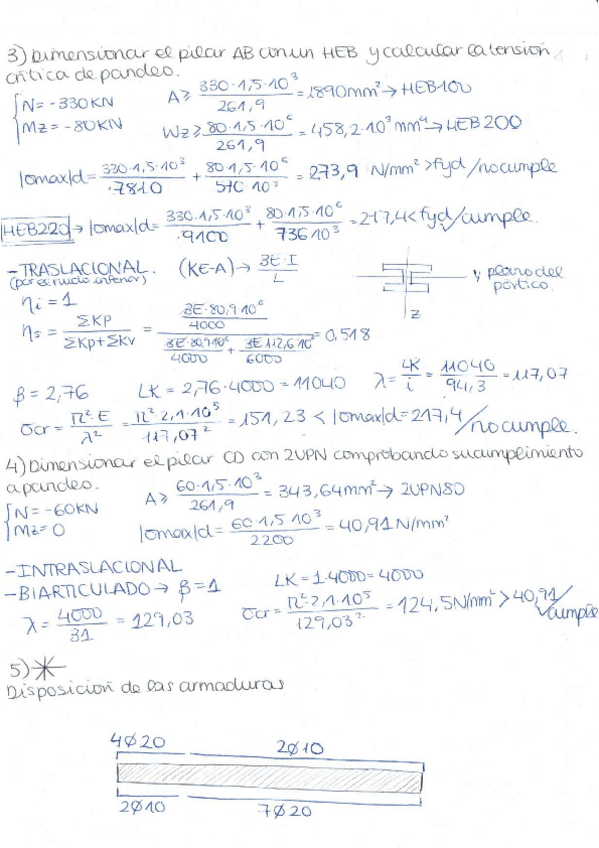 3) Dimensionar el pilar AB con un HEB y calcular la tensión
crítica de pandeo.
{N= -330KN
Mz= -80KN
A ≥ 330·1,5·10³/261,9 = 1890mm² → HEB100
Wz ≥ 80·1,5·10⁶/261,9 = 458,2·10³ mm⁴ → HEB 200
|σmax|d = 330·1,5·10³/7810 + 80·1,5·10⁶/570·10³ = 273,9 N/mm² > fyd / no cumple
HEB220 → |σmax|d = 330·1,5·10³/9100 + 80·1,5·10⁶/736·10³ = 217,4 < fyd / cumple.
- TRASLACIONAL. (KE-A) → 3E·I/L
(por el nudo inferior)
y plano del
pórtico.
z
ηi = 1
ηs = ΣKp/(ΣKp+ΣKv) = (3E·80,9·10⁶/4000)/(3E·80,9·10⁶/4000 + 3E·112,6·10⁶/6000) = 0,518
β = 2,76 LK = 2,76·4000 = 11040 λ = LK/i = 11040/94,3 = 117,07
σcr = π²·E/λ² = π²·2,1·10⁵/117,07² = 151,23 < |σmax|d = 217,4 / no cumple.
4) Dimensionar el pilar CD con 2UPN comprobando su cumplimiento
a pandeo.
{N= -60KN
Mz= 0
A ≥ 60·1,5·10³/261,9 = 343,64mm² → 2UPN80
|σmax|d = 60·1,5·10³/2200 = 40,91 N/mm²
- INTRASLACIONAL
- BIARTICULADO → β = 1
LK = 1·4000 = 4000
λ = 4000/31 = 129,03
σcr = π²·2,1·10⁵/129,03² = 124,5N/mm² > 40,91 / cumple
5)
Disposición de las armaduras
4Ø20 2Ø10
2Ø10 7Ø20